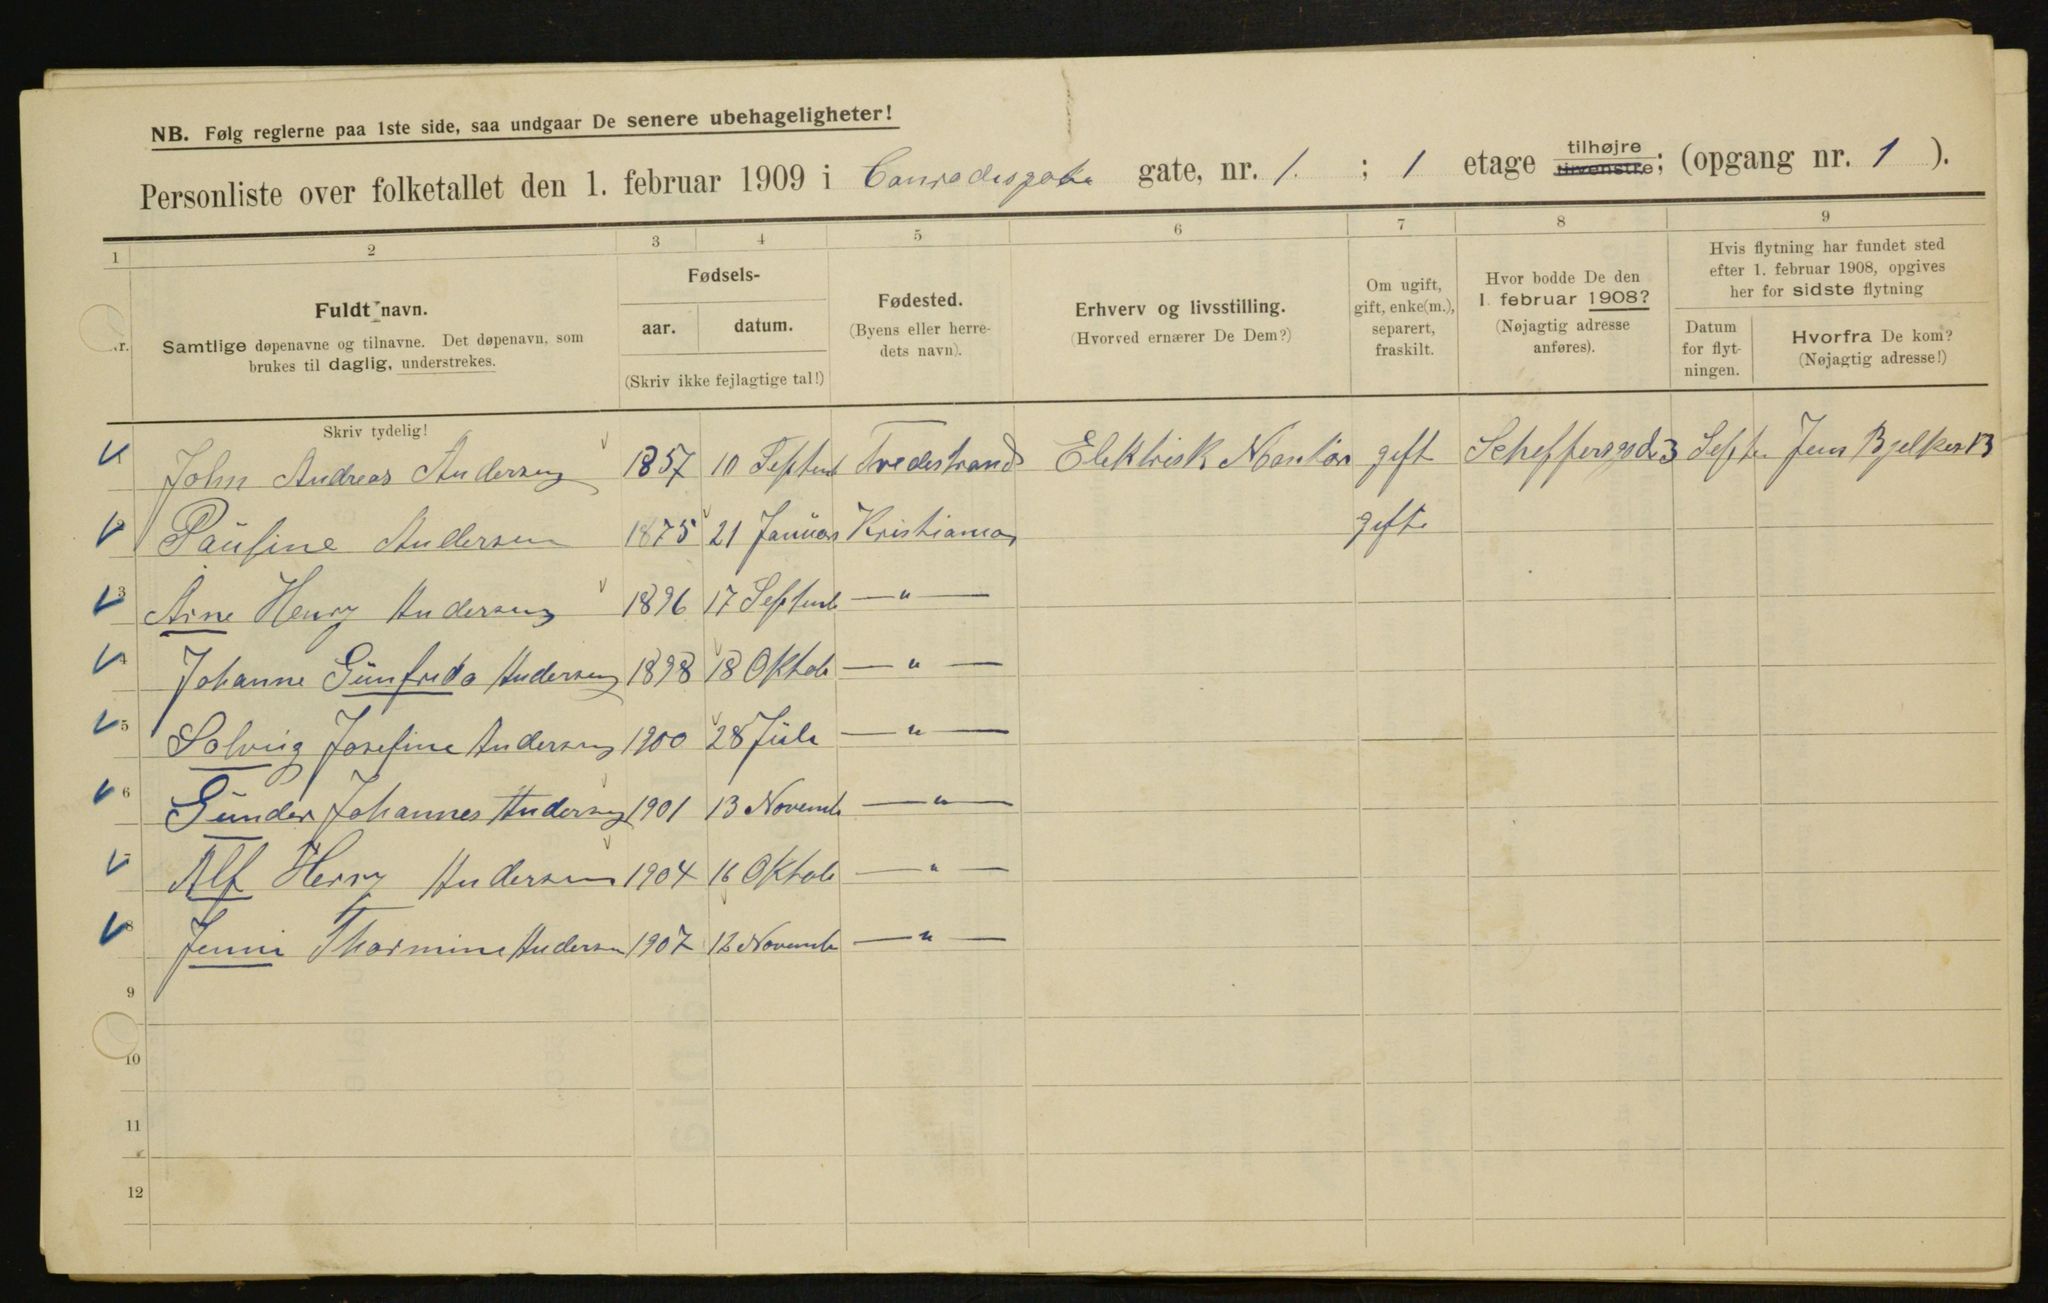 NB. Følg reglerne paa 1ste side, saa undgaar De senere ubehageligheter!
Personliste over folketallet den 1. februar 1909 i Conradisgate gate, nr. 1. ; 1 etage tilhøjre tilvenstre; (opgang nr. 1 ).
1 2 3 4 5 6 7 8 9
Nr.
Fuldt navn.
Samtlige døpenavne og tilnavne. Det døpenavn, som
brukes til daglig, understrekes.
Skriv tydelig!
Fødsels-
aar. datum.
(Skriv ikke fejlagtige tal!)
Fødested.
(Byens eller herre-
dets navn).
Erhverv og livsstilling.
(Hvorved ernærer De Dem?)
Om ugift,
gift, enke(m.),
separert,
fraskilt.
Hvor bodde De den
1. februar 1908?
(Nøjagtig adresse
anføres).
Hvis flytning har fundet sted
efter 1. februar 1908, opgives
her for sidste flytning
Datum
for flyt-
ningen.
Hvorfra De kom?
(Nøjagtig adresse!)
1 John Andreas Andersen 1857 10 Septemb Tvedestrand Elektrisk Montør gift Scheffersgade 3 Septe Jens Bjelkes 13
2 Pauline Andersen 1875 21 Januar Kristiania gift
3 Arne Henry Andersen 1896 17 Septemb — " —
4 Johanne Gunfrida Andersen 1898 18 Oktob — " —
5 Solveig Josefine Andersen 1900 28 Juli — " —
6 Gunder Johannes Andersen 1901 13 Novemb — " —
7 Alf Henry Andersen 1904 16 Oktob — " —
8 Jenni Thormine Andersen 1907 12 Novemb — " —
9
10
11
12